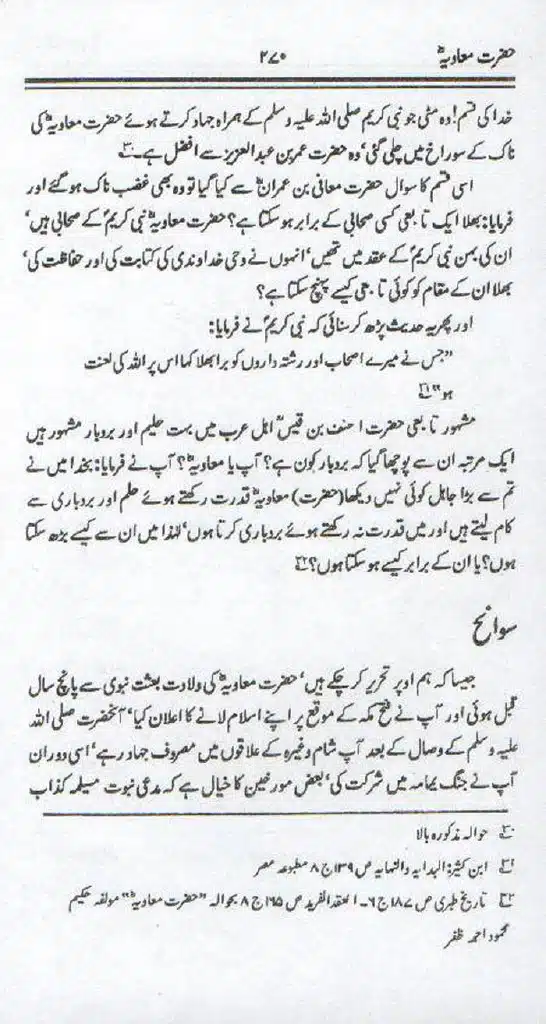 حضرت معاویہؓ ۲۷۰
خدا کی قسم! وہ مٹی جو نبی کریم صلی اللہ علیہ وسلم کے ہمراہ جہاد کرتے ہوئے حضرت معاویہؓ کی
ناک کے سوراخ میں چلی گئی، وہ حضرت عمر بن عبدالعزیز سے افضل ہے۔۲۰
اسی قسم کا سوال حضرت معانی بن عمرانؒ سے کیا گیا تو وہ بھی غضب ناک ہو گئے اور
فرمایا: بھلا ایک تابعی کسی صحابی کے برابر ہو سکتا ہے؟ حضرت معاویہؓ نبی کریمؐ کے صحابی ہیں،
ان کی بہن نبی کریمؐ کے عقد میں تھیں، انہوں نے وحی خداوندی کی کتابت کی اور حفاظت کی،
بھلا ان کے مقام کو کوئی تابعی کیسے پہنچ سکتا ہے؟
اور پھر یہ حدیث پڑھ کر سنائی کہ نبی کریمؐ نے فرمایا:
”جس نے میرے اصحاب اور رشتہ داروں کو برا بھلا کہا اس پر اللہ کی لعنت
ہو“۲۱
مشہور تابعی حضرت احنف بن قیسؒ اہل عرب میں بہت حلیم اور بردبار مشہور ہیں
ایک مرتبہ ان سے پوچھا گیا کہ بردبار کون ہے؟ آپ یا معاویہؓ؟ آپ نے فرمایا: بخدا میں نے
تم سے بڑا جاہل کوئی نہیں دیکھا (حضرت) معاویہؓ قدرت رکھتے ہوئے حلم اور بردباری سے
کام لیتے ہیں اور میں قدرت نہ رکھتے ہوئے بردباری کرتا ہوں، لہٰذا میں ان سے کیسے بڑھ سکتا
ہوں؟ یا ان کے برابر کیسے ہو سکتا ہوں؟۲۲
سوانح
جیسا کہ ہم اوپر تحریر کر چکے ہیں، حضرت معاویہؓ کی ولادت بعثت نبوی سے پانچ سال
قبل ہوئی اور آپ نے فتح مکہ کے موقع پر اپنے اسلام لانے کا اعلان کیا، آنحضرت صلی اللہ
علیہ وسلم کے وصال کے بعد آپ شام وغیرہ کے علاقوں میں مصروف جہاد رہے، اسی دوران
آپ نے جنگ یمامہ میں شرکت کی، بعض مورخین کا خیال ہے کہ مدعی نبوت مسیلمہ کذاب
۲۰ حوالہ مذکورہ بالا
۲۱ ابن کثیرؒ: البدایہ والنہایہ ص ۱۳۹ ج ۸ مطبوعہ مصر
۲۲ تاریخ طبری ص ۱۸۷ ج ۶۔ العقد الفرید ص ۱۶۵ ج ۸ بحوالہ ”حضرت معاویہؓ“ مولفہ حکیم
محمود احمد ظفر